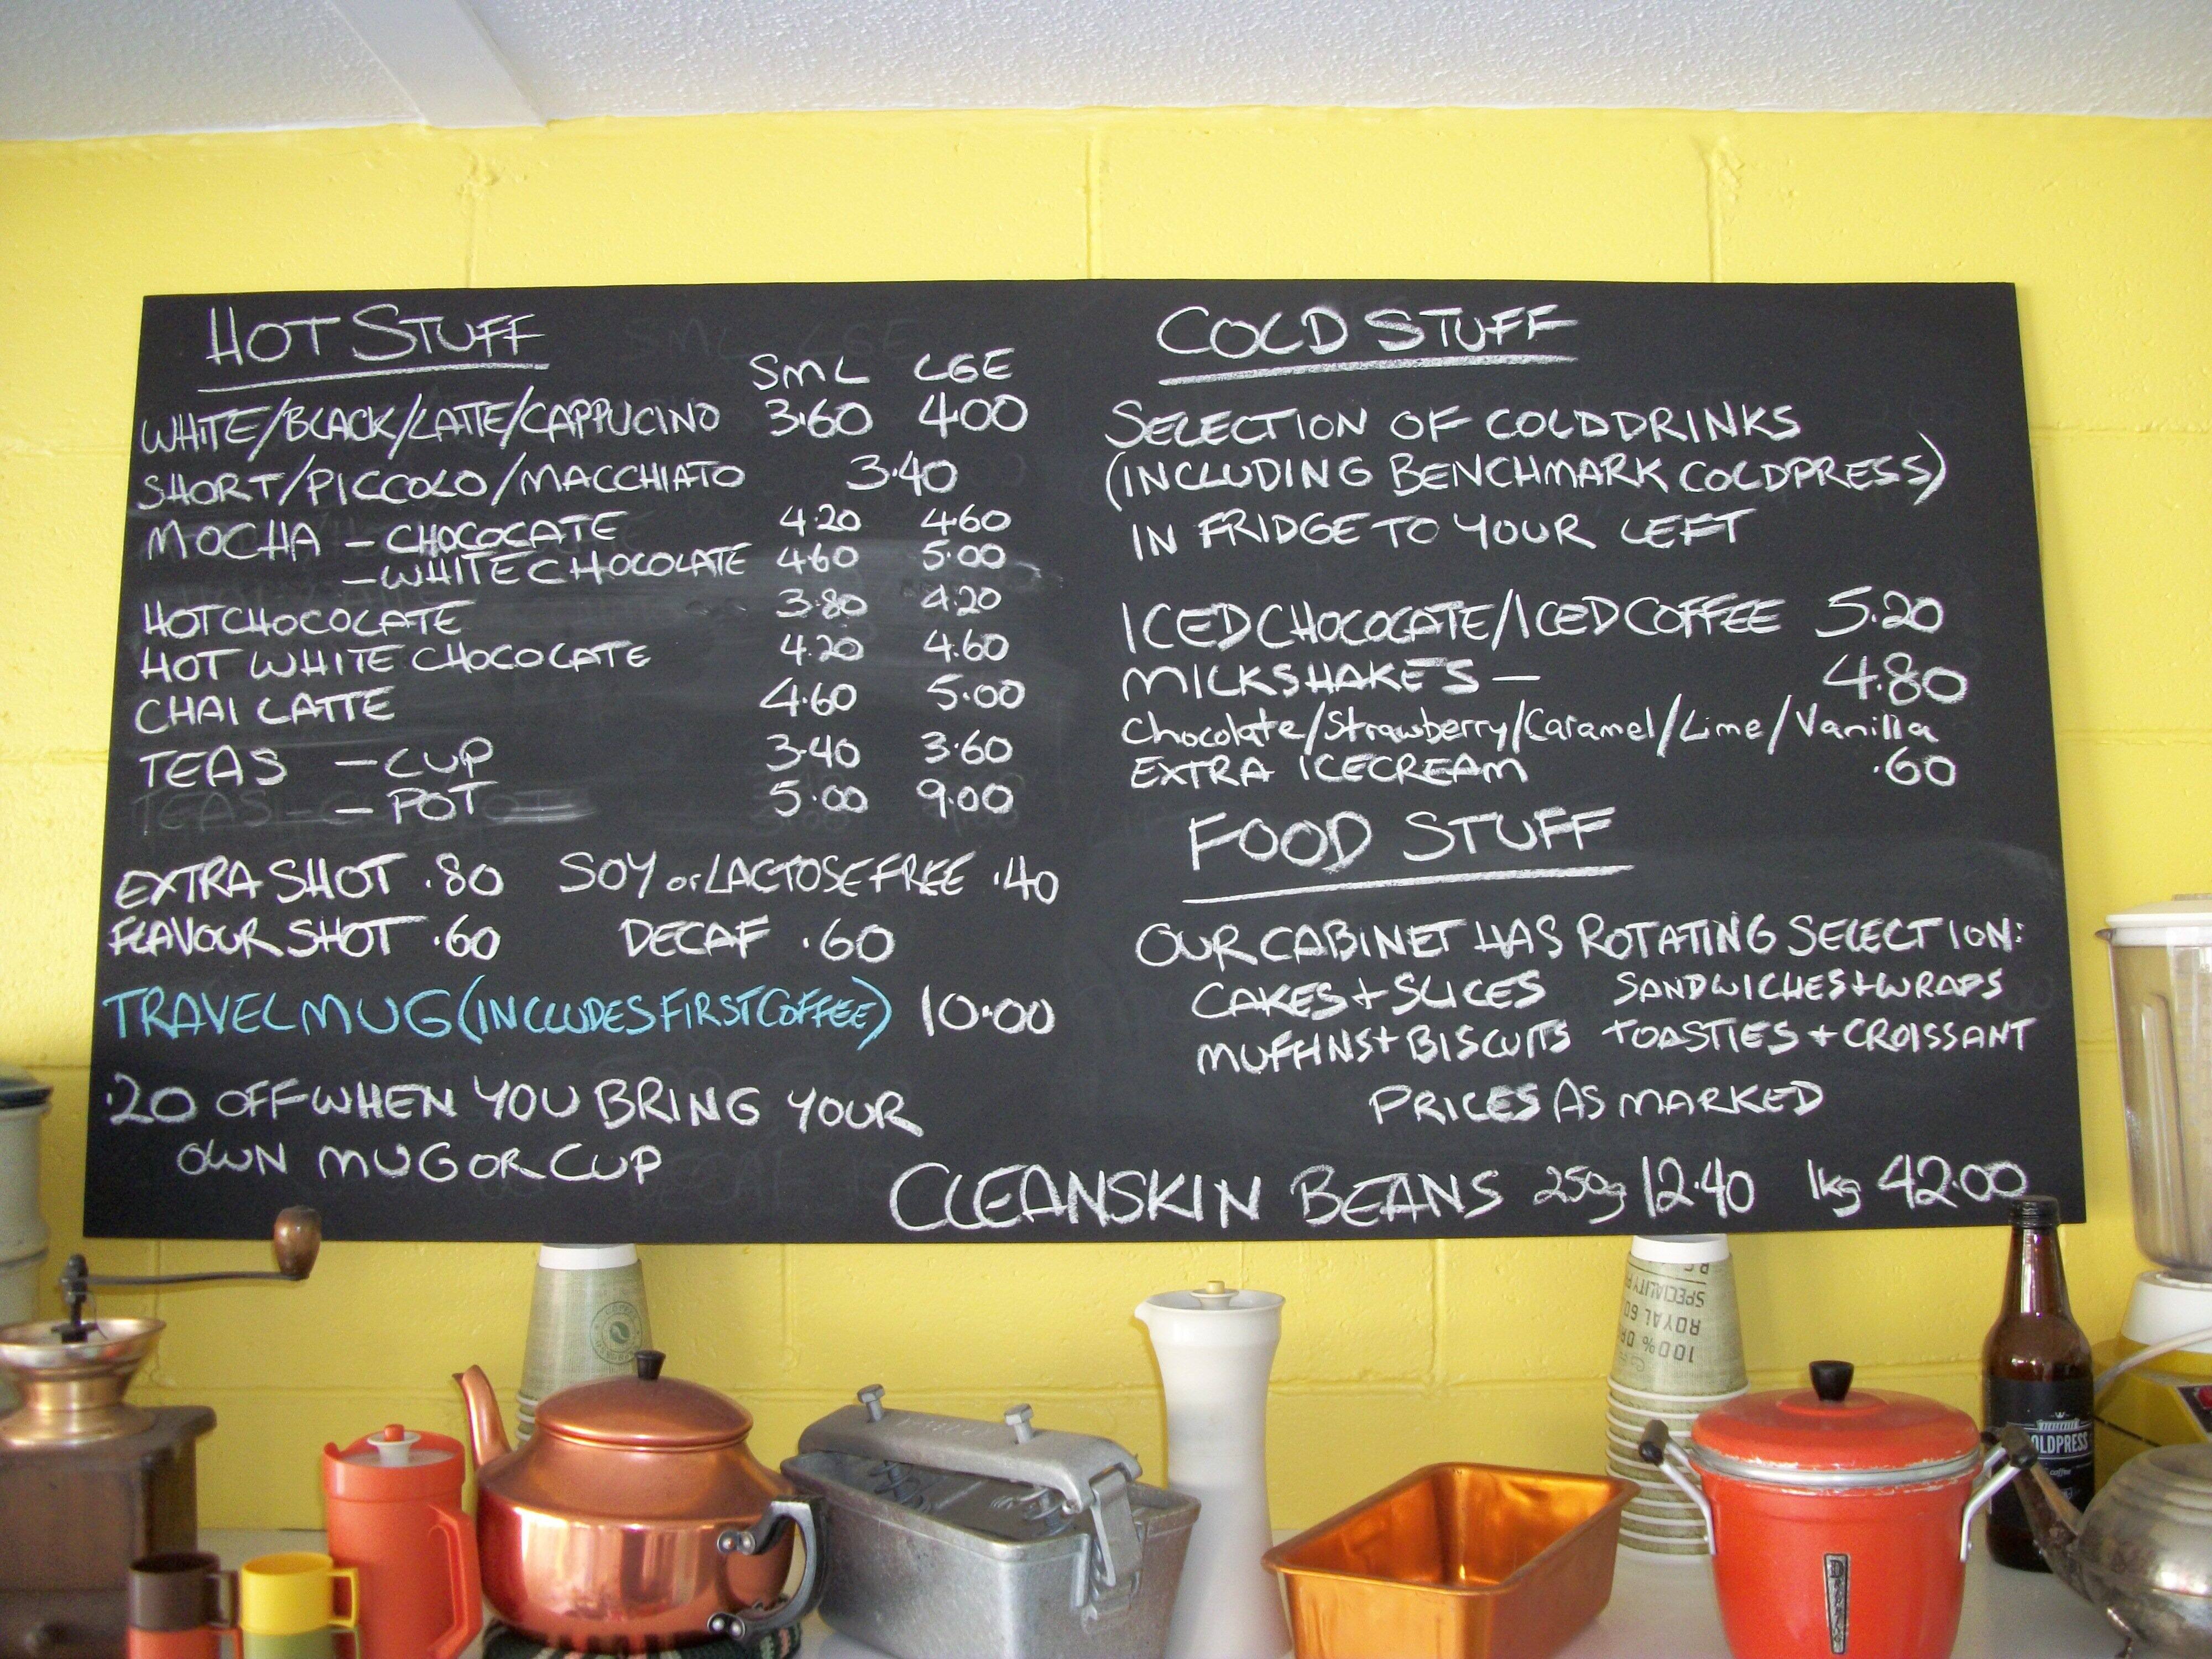 HOT STUFF
SML LGE
WHITE/BLACK/LATTE/CAPPUCINO 3.60 4.00
SHORT/PICCOLO/MACCHIATO 3.40
MOCHA - CHOCOLATE 4.20 4.60
- WHITE CHOCOLATE 4.60 5.00
HOT CHOCOLATE 3.80 4.20
HOT WHITE CHOCOLATE 4.20 4.60
CHAI LATTE 4.60 5.00
TEAS - CUP 3.40 3.60
- POT 5.00 9.00
EXTRA SHOT .80 SOY or LACTOSE FREE .40
FLAVOUR SHOT .60 DECAF .60
TRAVEL MUG (INCLUDES FIRST COFFEE) 10.00
.20 OFF WHEN YOU BRING YOUR
OWN MUG OR CUP
COLD STUFF
SELECTION OF COLD DRINKS
(INCLUDING BENCHMARK COLDPRESS)
IN FRIDGE TO YOUR LEFT
ICED CHOCOLATE/ICED COFFEE 5.20
MILKSHAKES - 4.80
Chocolate/Strawberry/Caramel/Lime/Vanilla
EXTRA ICECREAM .60
FOOD STUFF
OUR CABINET HAS ROTATING SELECTION:
CAKES + SLICES SANDWICHES + WRAPS
MUFFINS + BISCUITS TOASTIES + CROISSANT
PRICES AS MARKED
CLEANSKIN BEANS 250g 12.40 1kg 42.00
SPECIALITY
ROYAL
100%
OLDPRESS
coffee